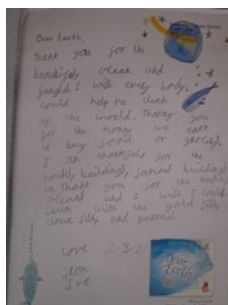 Dear Earth,
Thank you for the
beautiful ocean and
jungle I wish every body
could help me clean
up the world. Thankyou
for the money we earn
to buy food or
I am thankful for the
houses, buildings, school buildings
Thank you for the
ocean and I wish I could
swim with the gold fish
clown fish and
Love
Dear
Earth